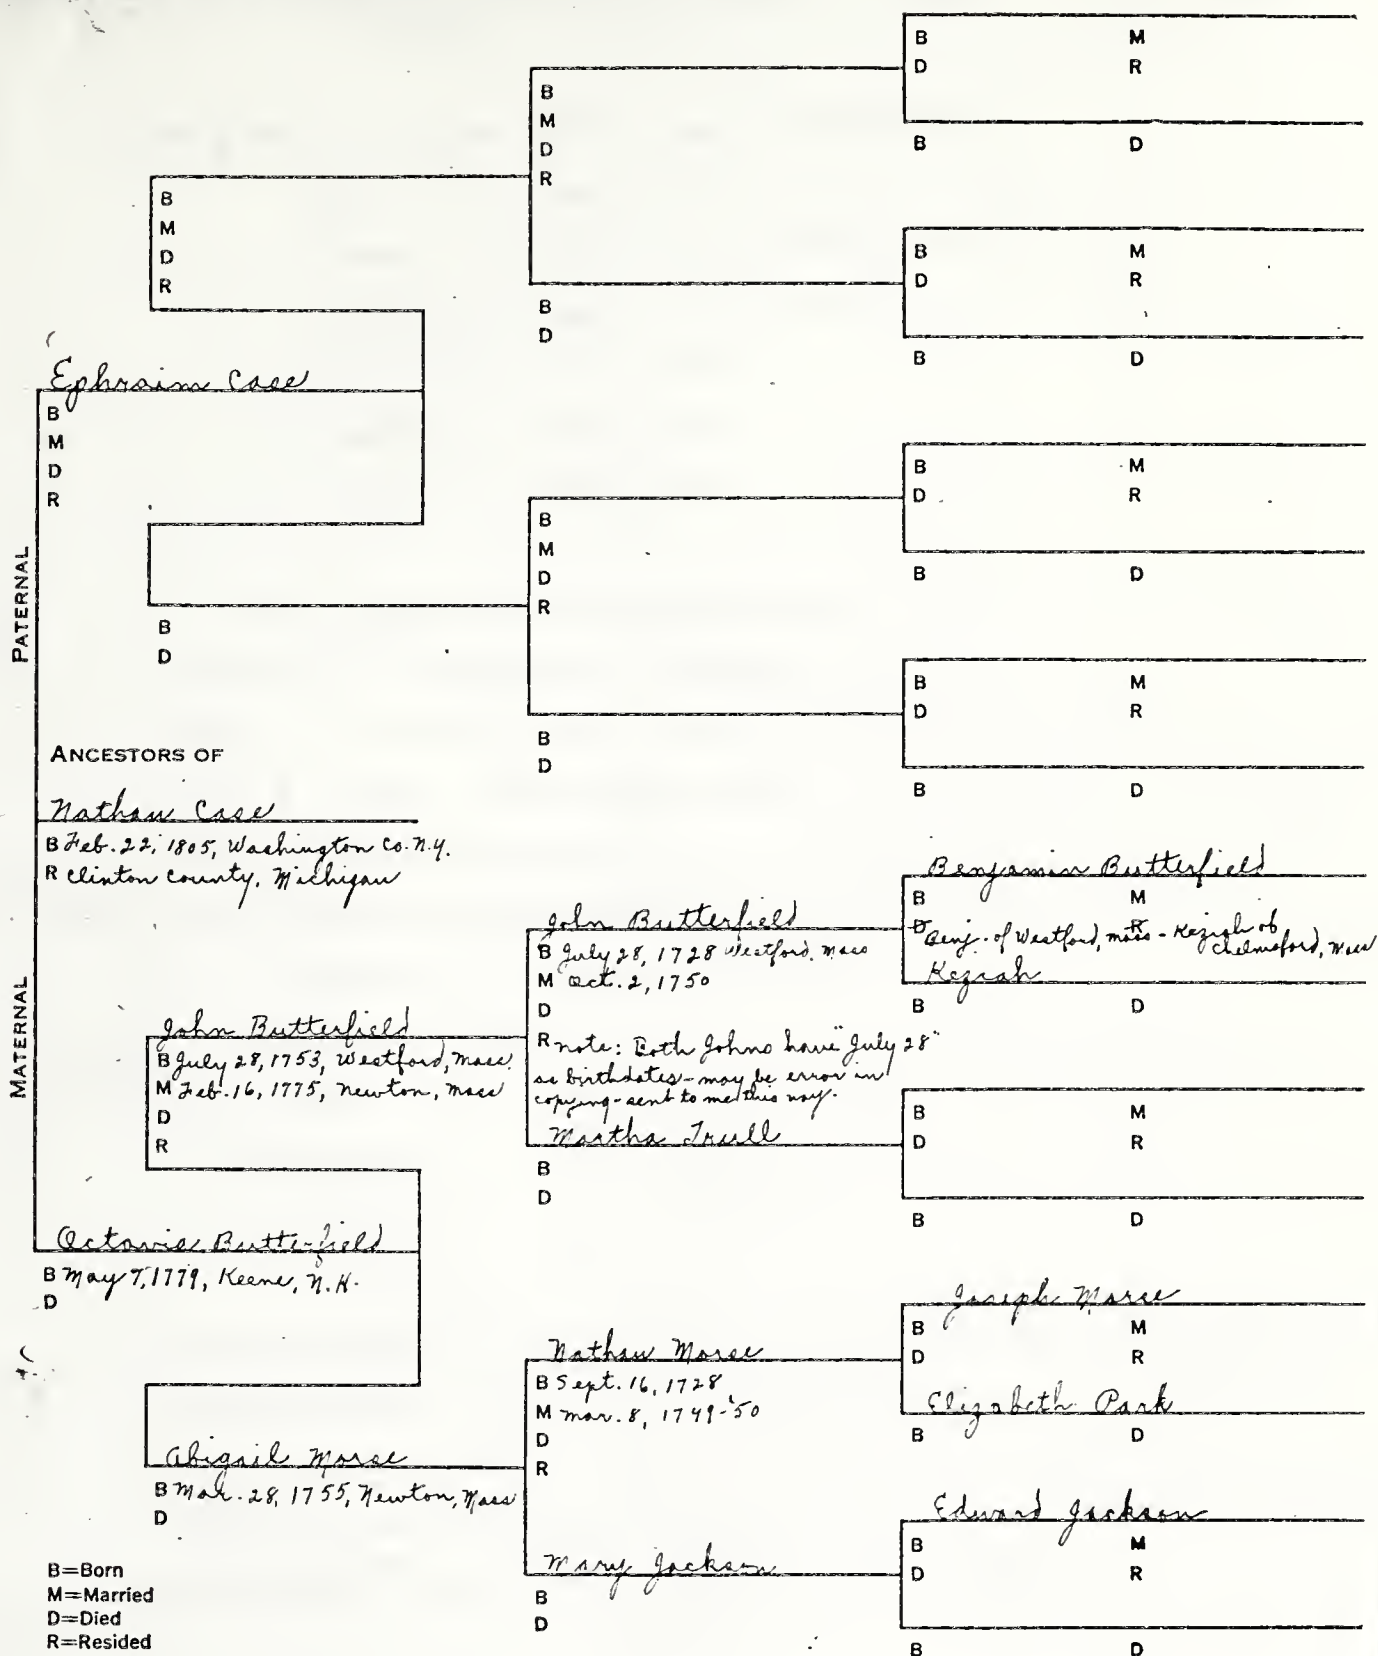 B M
D R
B
M
D
R
B D
B
M
D
R
B M
D R
B
D
B D
Ephraim Case
B
M
D
R
B M
D R
B
M
D
R
B D
PATERNAL
B
D
B M
D R
B
D
B D
ANCESTORS OF
Nathan Case
B Feb. 22, 1805, Washington Co. N.Y.
R Clinton County, Michigan
Benjamin Butterfield
B M
D R
Benj. of Westford, Mass - Keziah of
Chelmsford, Mass
Keziah
B D
John Butterfield
B July 28, 1728 Westford, Mass
M Oct. 2, 1750
D
R note: Both Johns have "July 28"
as birthdates - may be error in
copying - sent to me this way.
Martha Trull
B
D
MATERNAL
John Butterfield
B July 28, 1753, Westford, Mass.
M Feb. 16, 1775, Newton, Mass
D
R
B M
D R
B D
Octavia Butterfield
B May 7, 1779, Keene, N.H.
D
Joseph Morse
B M
D R
Elizabeth Park
B D
Nathan Morse
B Sept. 16, 1728
M Mar. 8, 1749-'50
D
R
Abigail Morse
B Mar. 28, 1755, Newton, Mass
D
Edward Jackson
B M
D R
Mary Jackson
B
D
B D
B=Born
M=Married
D=Died
R=Resided